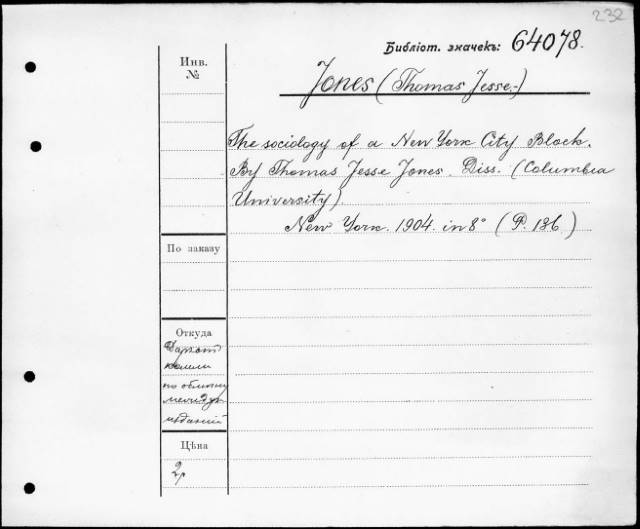 232
Библіот. значекъ: 64078.
Инв.
№
Jones (Thomas Jesse.)
The sociology of a New York City Block.
By Thomas Jesse Jones. Diss. (Columbia
University)
New York. 1904. in 8° (P. 136)
По заказу
Откуда
по обмѣну
изданій
Цѣна
2 р